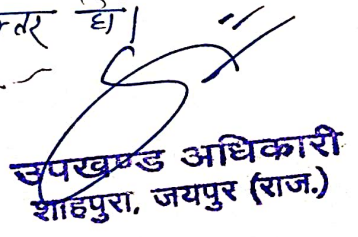 हो।
उपखण्ड अधिकारी
शाहपुरा, जयपुर (राज.)